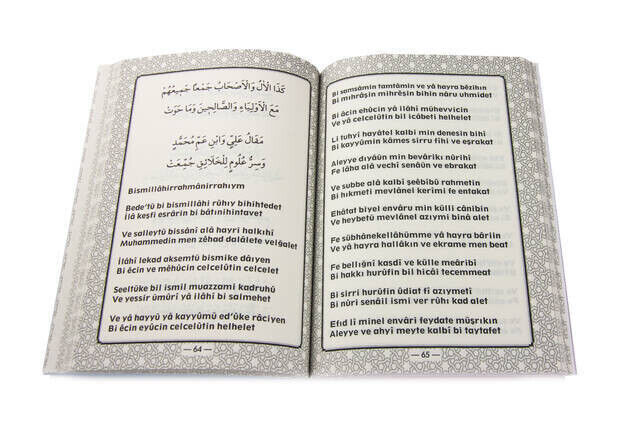 كَذَا الْآلُ وَالْأَصْحَابُ جَمْعًا جَمِيعُهُمْ
مَعَ الْأَوْلِيَاءِ وَالصَّالِحِينَ وَمَا حَوَتْ
مَقَالُ عَلِيٍّ وَابْنِ عَمِّ مُحَمَّدٍ
وَسِرُّ عُلُومٍ لِلْخَلَائِقِ جُمِّعَتْ
Bismillâhirrahmânirrahıym
Bede'tü bi bismillâhi rûhıy bihihtedet
İlâ keşfi esrârin bi bâtınihintavet
Ve salleytü bissâni alâ hayri halkıhî
Muhammedin men zêhad dalâlete velğalet
İlâhi lekad aksemtü bismike dâıyen
Bi êcin ve mêhûcin celcelûtin celcelet
Seeltüke bil ismil muazzami kadruhû
Ve yessir ümûrî yâ ilâhî bi salmehet
Ve yâ hayyü yâ kayyûmü ed'ûke râciyen
Bi êcin eyûcin celcelûtin helhelet
— 64 —
Bi samsâmin tamtâmin ve yâ hayra bêzihın
Bi mıhrâşin mihrêşin bihin nâru uhmidet
Bi âcin ehûcin yâ ilâhî mühevvicin
Ve yâ celcelûtin bil icâbeti helhelet
Li tuhyî hayâtel kalbi min denesin bihî
Bi kayyûmin kâmes sirru fîhi ve eşrakat
Aleyye dıyâün min bevârikı nûrihî
Fe lâha alâ vechî senâün ve ebrakat
Ve subbe alâ kalbî şeêbîbü rahmetin
Bi hıkmeti mevlânel kerîmi fe entakat
Ehâtat biyel envâru min külli cânibin
Ve heybetü mevlânel azıymi binâ alet
Fe sübhânekellâhümme yâ hayra bâriin
Ve yâ hayra hallâkın ve ekrame men beat
Fe bellığnî kasdî ve külle meâribî
Bi hakkı hurûfin bil hicâi tecemmeat
Bi sirri hurûfin ûdiat fî azıymetî
Bi nûri senâil ismi ver rûhı kad alet
Efıd lî minel envâri feydate müşrıkın
Aleyye ve ahyî meyte kalbî bi taytafet
— 65 —